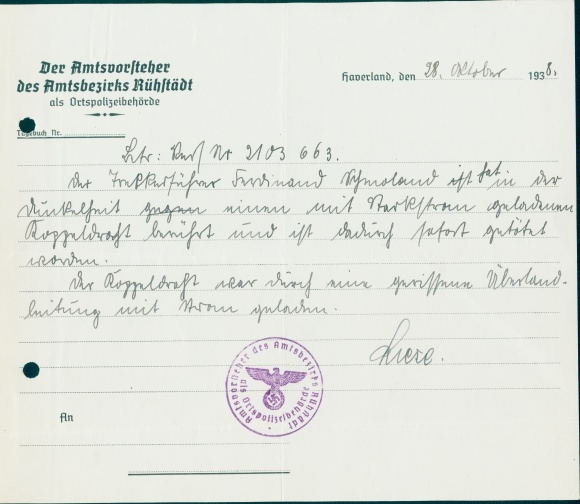 Der Amtsvorsteher
des Amtsbezirks Rühstädt
als Ortspolizeibehörde
Tagebuch Nr.
Haverland, den 28. Oktober 1938.
Betr: Vers Nr 2103 663.
Der Treckerführer Ferdinand Schmoland ist hat in der
Dunkelheit gegen einen mit Starkstrom geladenen
Koppeldraht berührt und ist dadurch sofort getötet
worden.
Der Koppeldraht war durch eine gerissene Überland-
leitung mit Strom geladen.
Amtsvorsteher des Amtsbezirks Rühstädt
als Ortspolizeibehörde
An